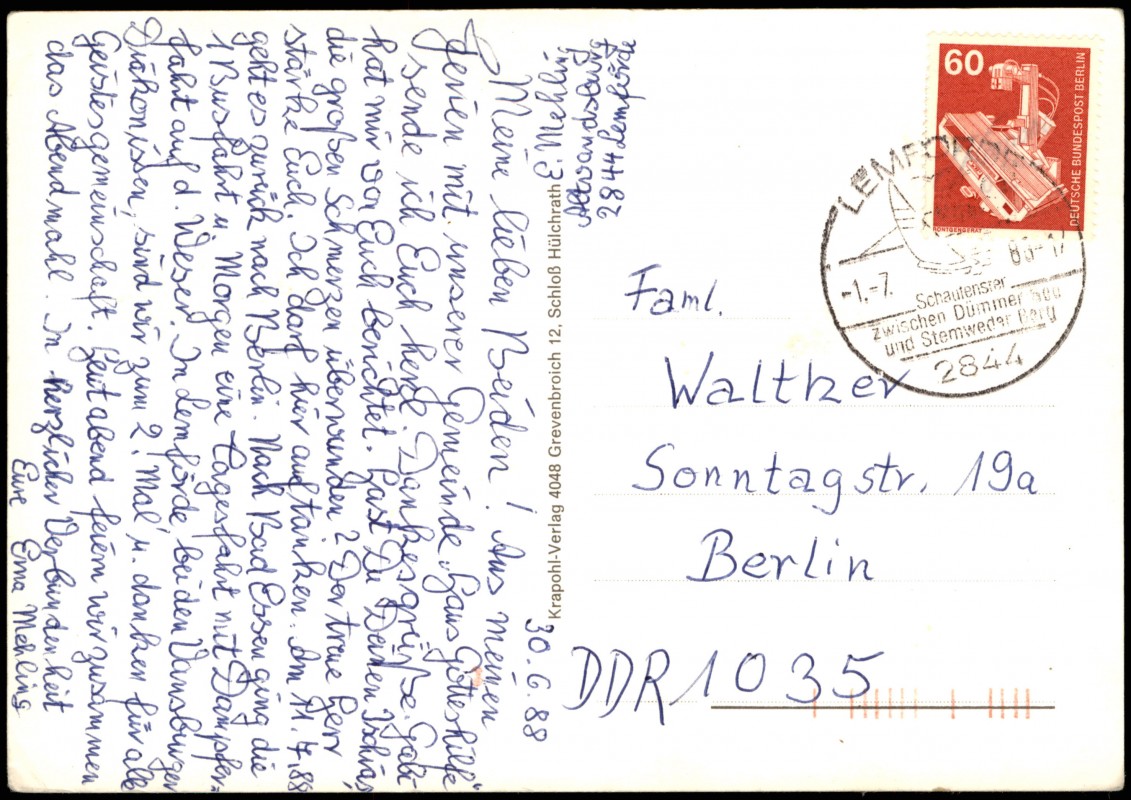 E. Mehling
2844 Lemförde
30. 6. 88
Meine lieben Beiden! Aus meinen
Ferien mit unserer Gemeinde „Haus Gotteshilfe"
sende ich Euch herzl. Dankesgrüße. Gabi
hat mir von Euch berichtet. Hast Du Deinen Ischias,
die großen Schmerzen überwunden? Der treue Herr
stärke Euch. Ich darf hier auftanken. Am 11. 7. 88
geht es zurück nach Berlin. Nach Bad Essen ging die
1 Busfahrt u. Morgen eine Tagesfahrt mit Dampfer=
fahrt auf d. Weser. In Lemförde, bei den Vansburger
Diakonissen, sind wir zum 2. Mal u. danken für alle
Geistesgemeinschaft. Heut abend feiern wir zusammen
das Abendmahl. In herzlicher Verbundenheit
Eure Erna Mehling
Krapohl-Verlag 4048 Grevenbroich 12, Schloß Hülchrath
60
DEUTSCHE BUNDESPOST BERLIN
RÖNTGENGERÄT
LEMFÖRDE
-1.-7. 88-17
Schaufenster
zwischen Dümmer See
und Stemweder Berg
2844
Faml.
Waltker
Sonntagstr. 19a
Berlin
DDR 1035